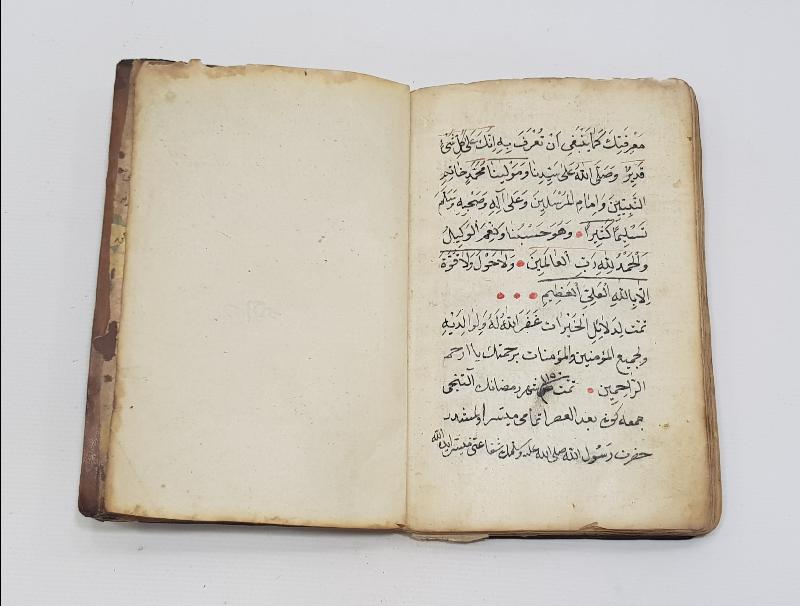 مَعْرِفَتِكَ كَمَا يَنْبَغِى اَنْ تُعْرَفَ بِهِ اِنَّكَ عَلَى كُلِّ شَىْءٍ
قَدِيرٌ وَصَلَّى اللهُ عَلَى سَيِّدِنَا وَمَوْلَينَا مُحَمَّدٍ خَاتَمِ
النَّبِيِّينَ وَاِمَامِ الْمُرْسَلِينَ وَعَلَى آلِهِ وَصَحْبِهِ وَسَلَّمَ
تَسْلِيمًا كَثِيرًا وَهُوَ حَسْبُنَا وَنِعْمَ الْوَكِيلُ
وَالْحَمْدُ لِلهِ رَبِّ الْعَالَمِينَ وَلَا حَوْلَ وَلَا قُوَّةَ
اِلَّا بِاللهِ الْعَلِىِّ الْعَظِيمِ
تمت لدلائل الخيرات غفر الله له ولوالديه
ولجميع المؤمنين والمؤمنات برحمتك يا ارحم
الراحمين تمت ١١٥٠ شهر رمضانك
جمعه كونى بعد العصر ميسر اولمشدر
حضرت رسول الله صلى الله عليه وسلمك شفاعتى ميسر الله